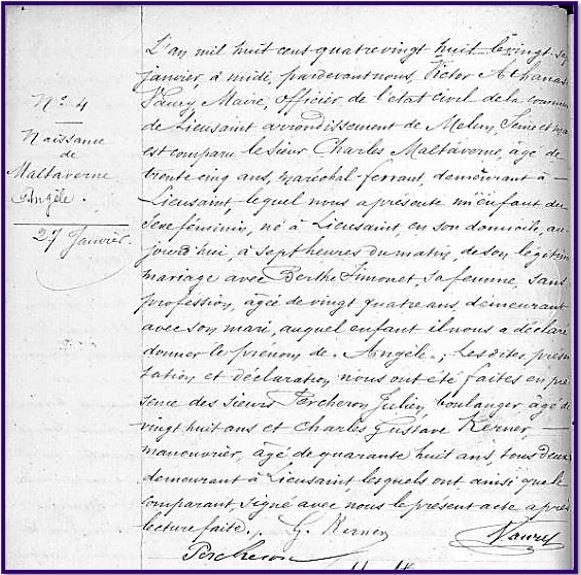 Nº 4
Naissance
de
Maltaverne
Angèle.
27 Janvier.
L'an mil huit cent quatre vingt huit le vingt sep
janvier, à midi, pardevant nous, Victor Athanas
Vaury Maire, officier de l'état civil de la commun
de Lieusaint arrondissement de Melun, Seine et Ma
est comparu le sieur Charles Maltaverne, âgé de
trente cinq ans, maréchal ferrant, demeurant à —
Lieusaint, lequel nous a présenté un enfant du
sexe féminin, né à Lieusaint, en son domicile, au-
jourd'hui, à sept heures du matin, de son légitim
mariage avec Berthe Simonet, sa femme, sans
profession, âgée de vingt quatre ans, demeurant
avec son mari, auquel enfant il nous a déclaré
donner le prénom de Angèle.; Les dites présen
tation et déclaration nous ont été faites en pré
sence des sieurs Percheron Julien, boulanger, âgé de
vingt huit ans et Charles Gustave Kerner, —
manouvrier, âgé de quarante huit ans, tous deux
demeurant à Lieusaint, lesquels ont ainsi que le
comparant, signé avec nous le présent acte après
lecture faite. G. Kerner
Percheron